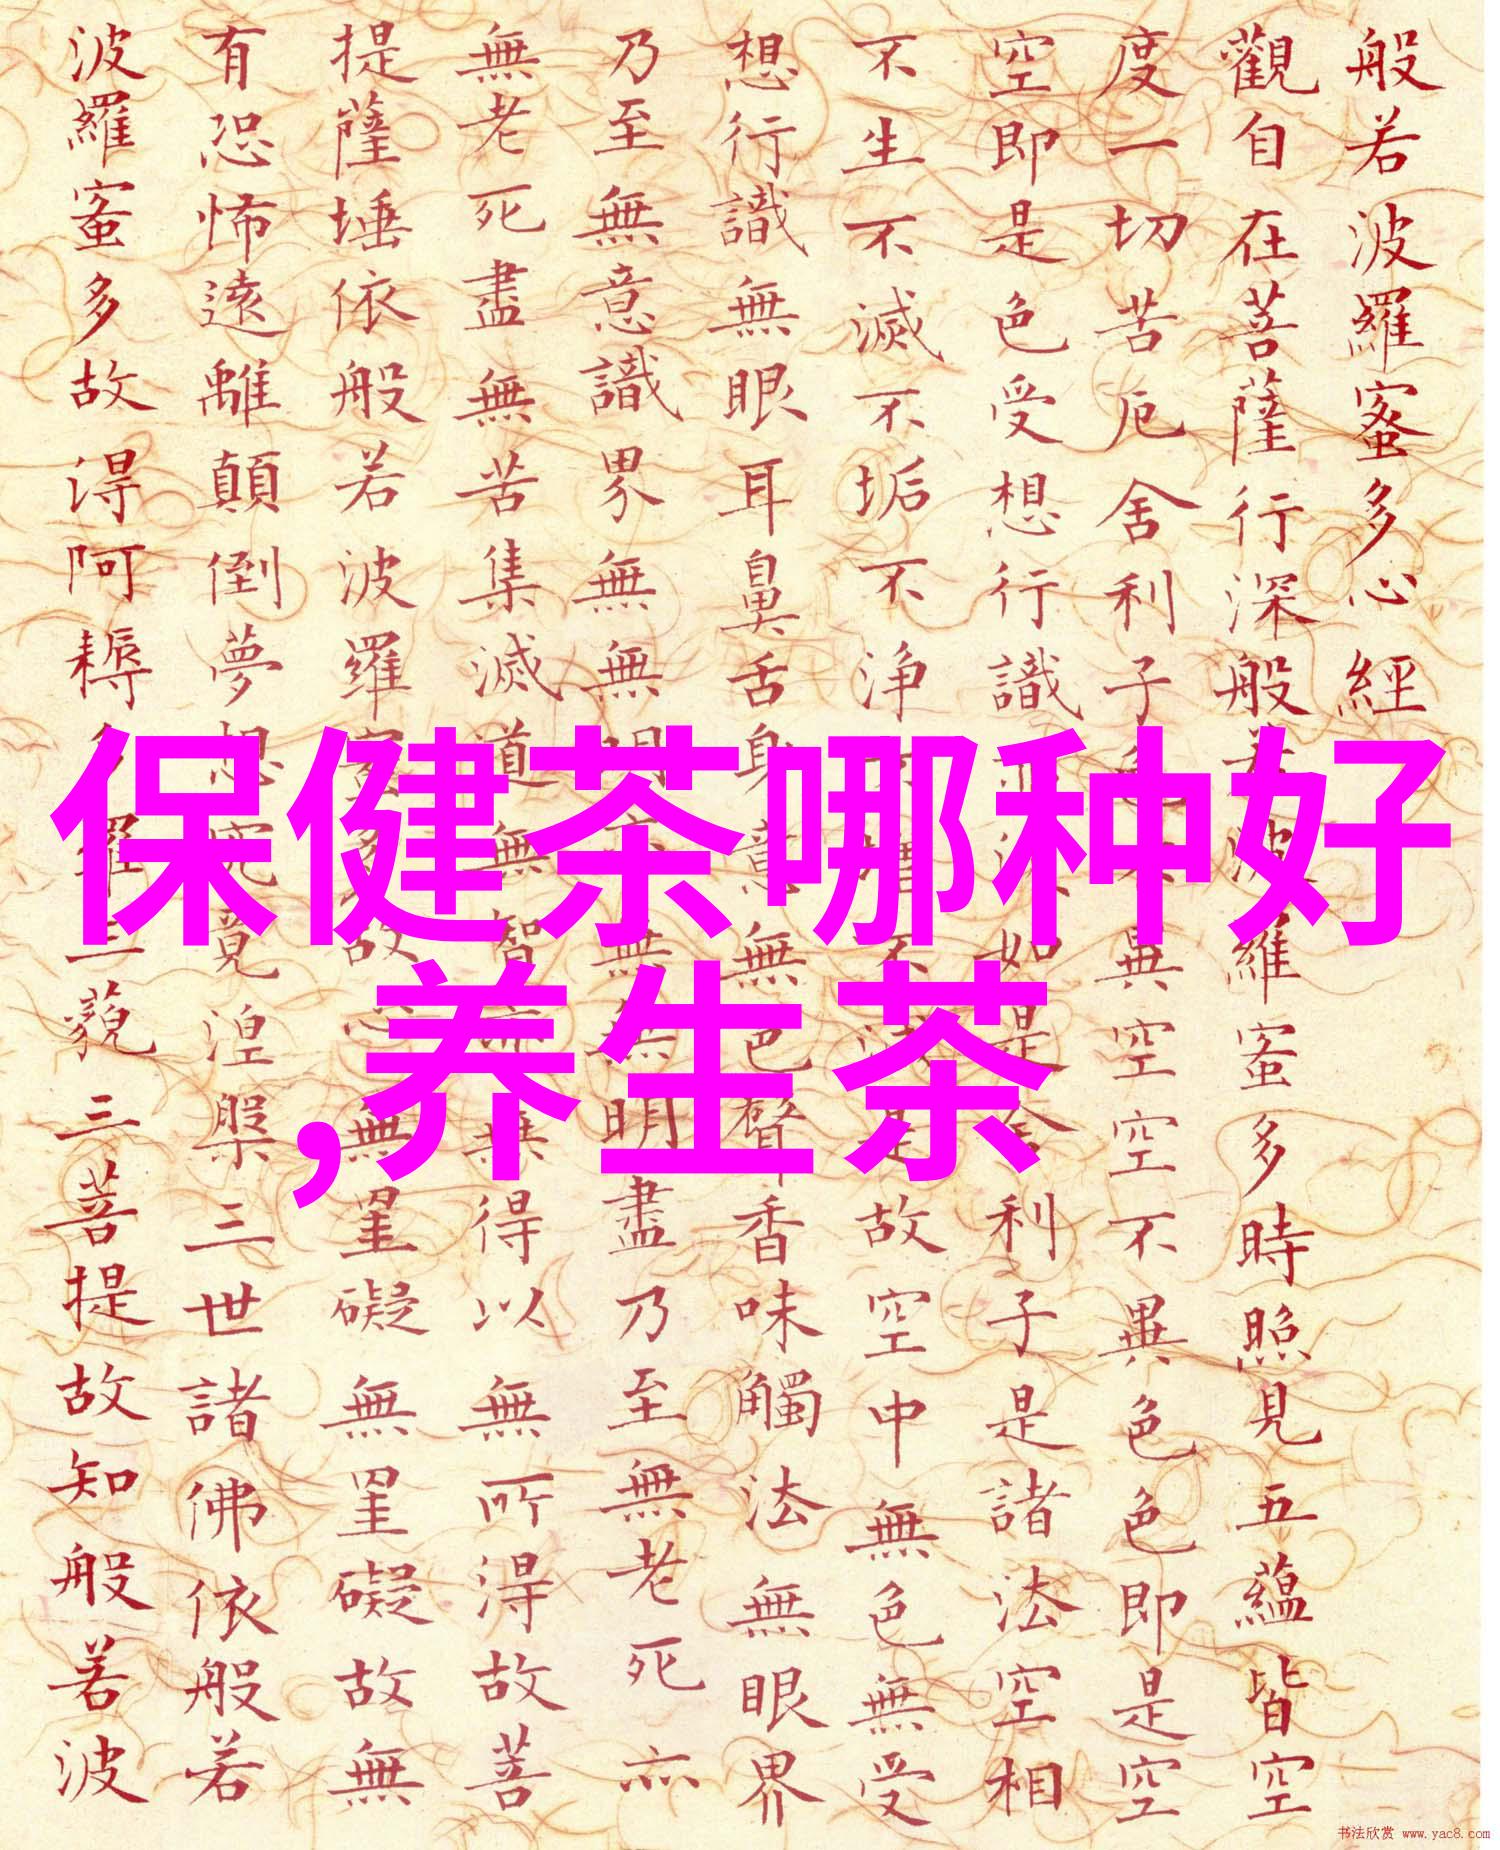 般若波羅蜜多心經
觀自在菩薩行深般若波羅蜜多時照見五蘊皆空
度一切苦厄舍利子色不異空空不異色色即是空
空即是色受想行識亦復如是舍利子是諸法空相
不生不滅不垢不净不增不減是故空中無色無受
想行識無眼耳鼻舌身意無色聲香味觸法無眼界
乃至無意識界無無明亦無無明盡乃至無老死亦
無老死盡無苦集滅道無智亦無得以無所得故菩
提薩埵依般若波羅蜜多故心無罣礙無罣礙故無
有恐怖遠離顛倒夢想究竟涅槃三世諸佛依般若
波羅蜜多故得阿耨多羅三藐三菩提故知般若波
保健茶哪种好
,养生茶
书法欣赏 www.yac8.com